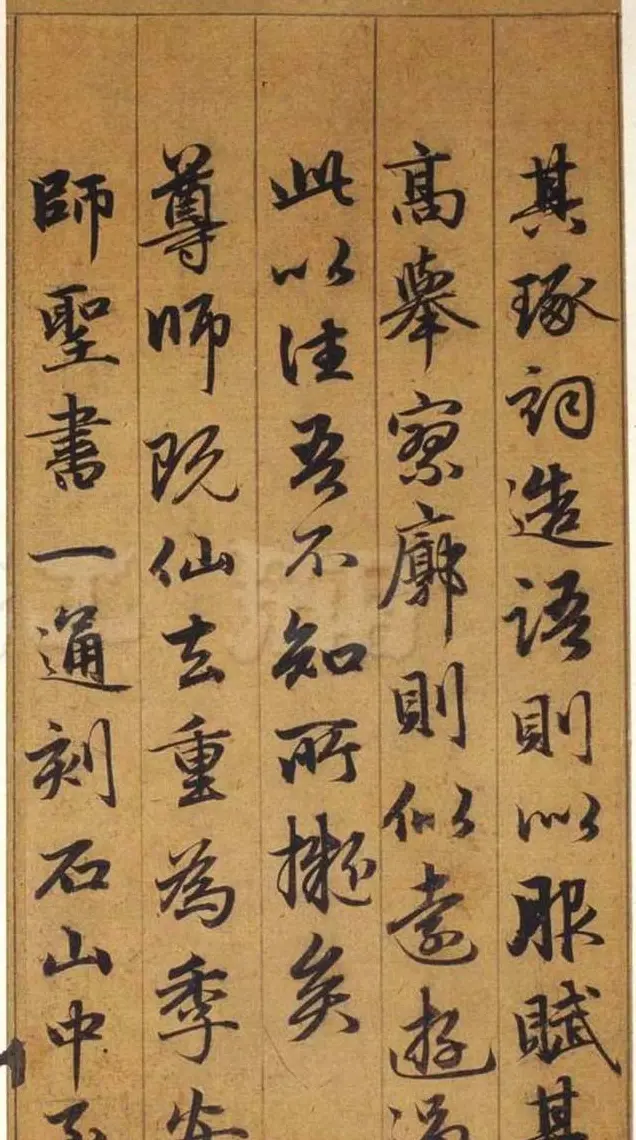 其琢詞造語則似服賦其
高舉寥廓則似遠遊過
此以往吾不知所擬矣
尊師既仙去重為季安
師聖書一通刻石山中